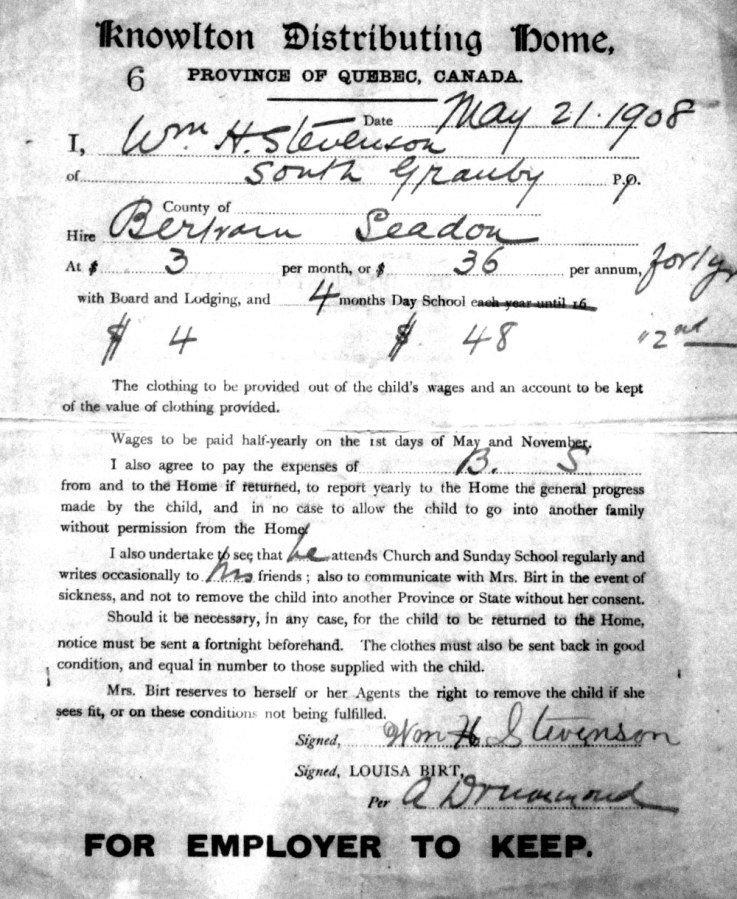 Knowlton Distributing Home,
6 PROVINCE OF QUEBEC, CANADA.
Date May 21. 1908
I, Wm H. Stevenson
of South Granby P.O.
County of
Hire Bertram Seadon
At $ 3 per month, or $ 36 per annum, for 1 yr
with Board and Lodging, and 4 months Day School each year until 16
$ 4 $ 48 "2nd
The clothing to be provided out of the child's wages and an account to be kept
of the value of clothing provided.
Wages to be paid half-yearly on the 1st days of May and November.
I also agree to pay the expenses of B. S
from and to the Home if returned, to report yearly to the Home the general progress
made by the child, and in no case to allow the child to go into another family
without permission from the Home
I also undertake to see that he attends Church and Sunday School regularly and
writes occasionally to his friends; also to communicate with Mrs. Birt in the event of
sickness, and not to remove the child into another Province or State without her consent.
Should it be necessary, in any case, for the child to be returned to the Home,
notice must be sent a fortnight beforehand. The clothes must also be sent back in good
condition, and equal in number to those supplied with the child.
Mrs. Birt reserves to herself or her Agents the right to remove the child if she
sees fit, or on these conditions not being fulfilled.
Signed, Wm H Stevenson
Signed, LOUISA BIRT,
Per A Drummond
FOR EMPLOYER TO KEEP.